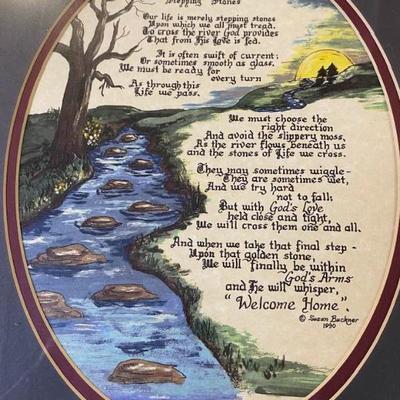 Stepping Stones
Our life is merely stepping stones
Upon which we all must tread.
To cross the river God provides
That from His Love is fed.
It is often swift of current;
Or sometimes smooth as glass.
We must be ready for
every turn
As through this
Life we pass.
We must choose the
right direction
And avoid the slippery moss,
As the river flows beneath us
and the stones of Life we cross.
They may sometimes wiggle-
They are sometimes wet,
And we try hard
not to fall;
But with God's Love
held close and tight,
We will cross them one and all.
And when we take that final step -
Upon that golden stone,
We will finally be within
God's Arms
and He will whisper,
"Welcome Home".
© Susan Buckner
1990